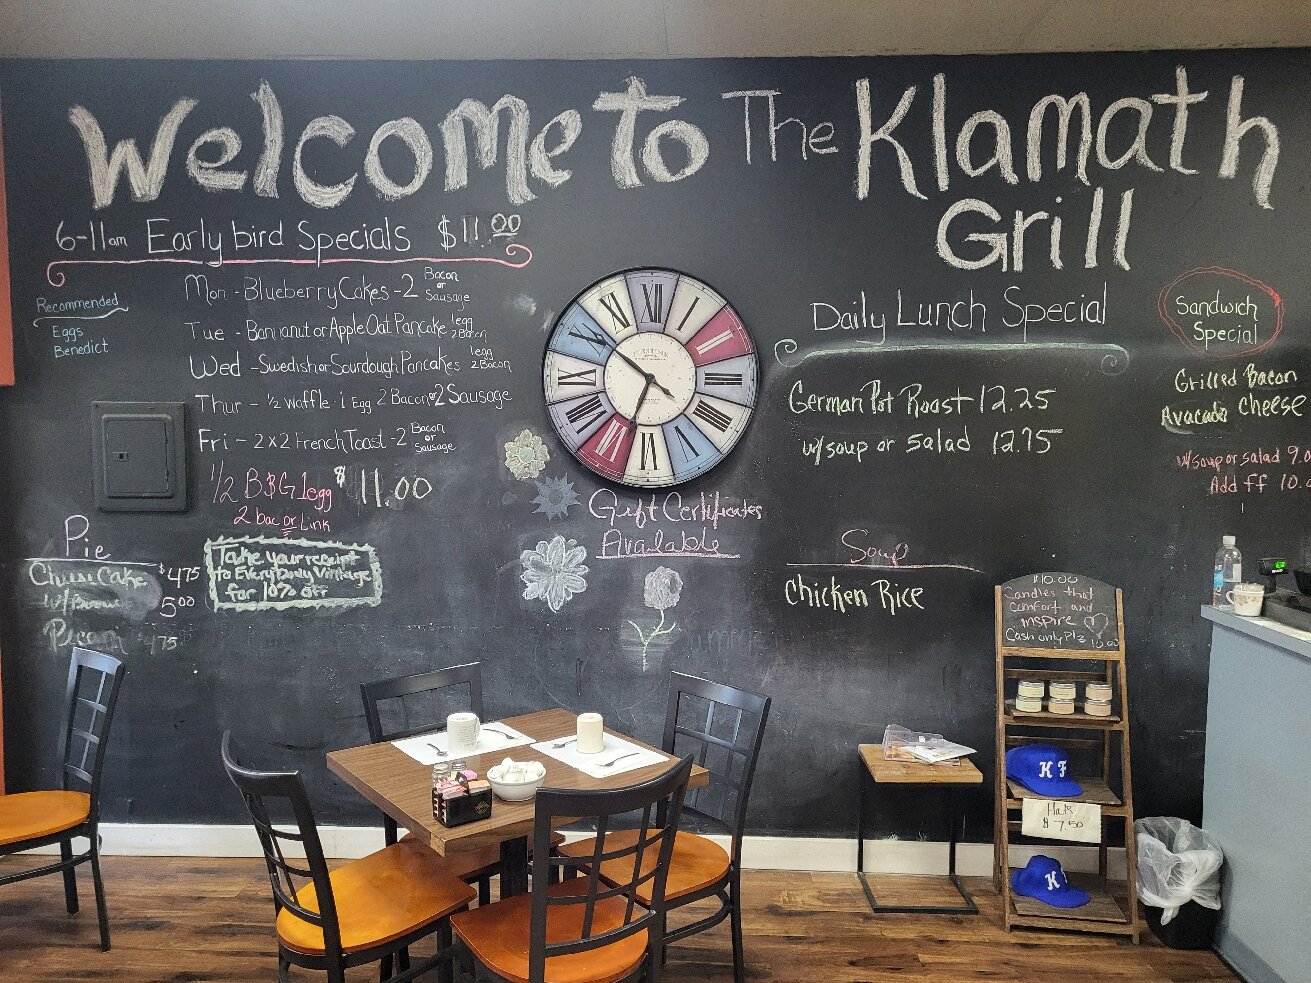 Welcome to The Klamath
Grill
6-11am Early bird Specials $11.00
Recommended
Eggs
Benedict
Mon - Blueberry Cakes - 2 Bacon or Sausage
Tue - Bananut or Apple Oat Pancake 1egg 2 Bacon
Wed - Swedish or Sourdough Pancakes 1egg 2 Bacon
Thur - 1/2 Waffle · 1 Egg 2 Bacon or 2 Sausage
Fri - 2x2 French Toast - 2 Bacon or Sausage
1/2 B&G 1egg $11.00
2 bac or Link
Pie
Cheese Cake $4.75
w/ 5.00
Pecan 4.75
Take your receipt
to Every Daily Vintage
for 10% off
XII I II III IIII V VI VII VIII IX X XI
Gift Certificates
Available
Daily Lunch Special
German Pot Roast 12.25
w/soup or salad 12.75
Soup
Chicken Rice
Sandwich
Special
Grilled Bacon
Avacado cheese
w/soup or salad 9.
Add ff 10.
$10.00
Candles that
comfort and
inspire
Cash only Plz 10.00
H F
Hats
$7.50
H